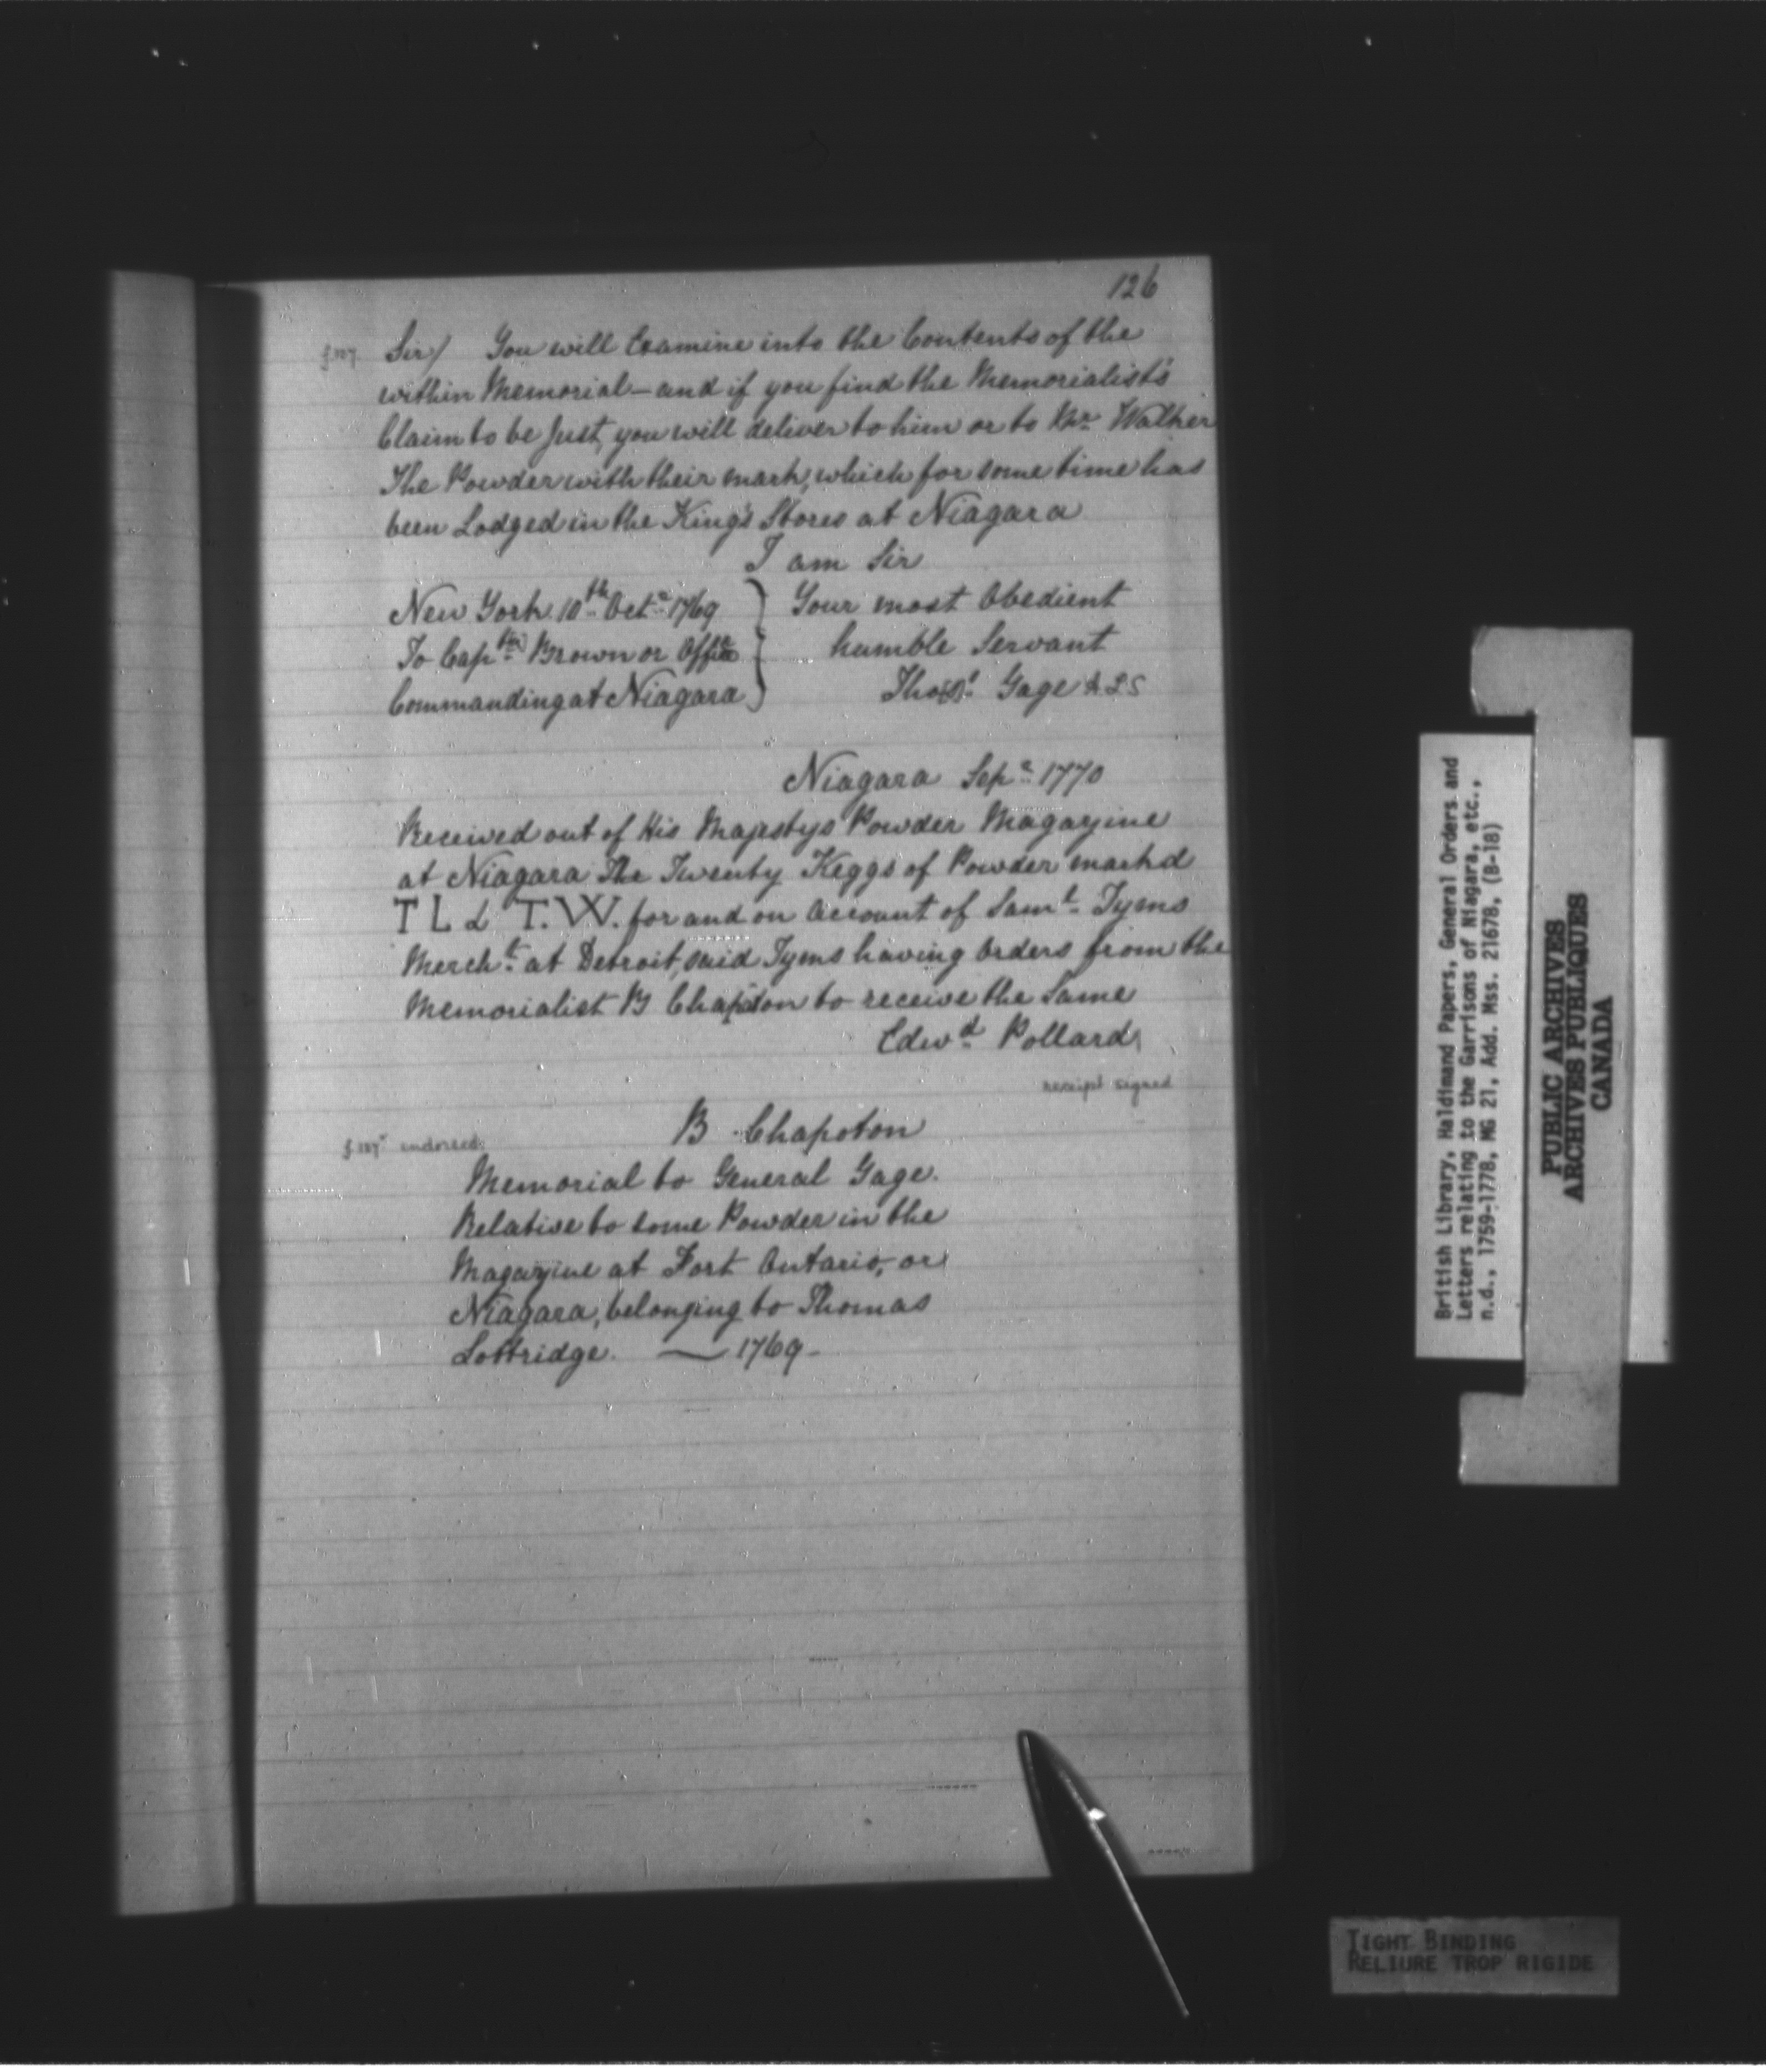 126
f.187. Sir) You will Examine into the Contents of the
within Memorial—and if you find the Memorialist's
Claim to be Just, you will deliver to him or to Mr. Walker
The Powder with their mark, which for some time has
been Lodged in the King's Stores at Niagara
I am Sir
New York 10th Octr 1769 } Your most Obedient
To Captn Brown or Officer } humble Servant
Commanding at Niagara } Thos. Gage A.L.S
Niagara Sepr 1770
Received out of His Majestys Powder Magazine
at Niagara The Twenty Keggs of Powder markd
T L & T.W. for and on Account of Saml. Tyms
Mercht. at Detroit, said Tyms having Orders from the
Memorialist B Chapoton to receive the Same
Edwd. Pollard
receipt signed
B. Chapoton
f.187v endorsed:
Memorial to General Gage.
Relative to some Powder in the
Magazine at Fort Ontario, or
Niagara, belonging to Thomas
Lottridge. — 1769-
British Library, Haldimand Papers, General Orders and
Letters relating to the Garrisons of Niagara, etc.,
n.d., 1759-1778, MG 21, Add. Mss. 21678, (B-18)
PUBLIC ARCHIVES
ARCHIVES PUBLIQUES
CANADA
TIGHT BINDING
RELIURE TROP RIGIDE